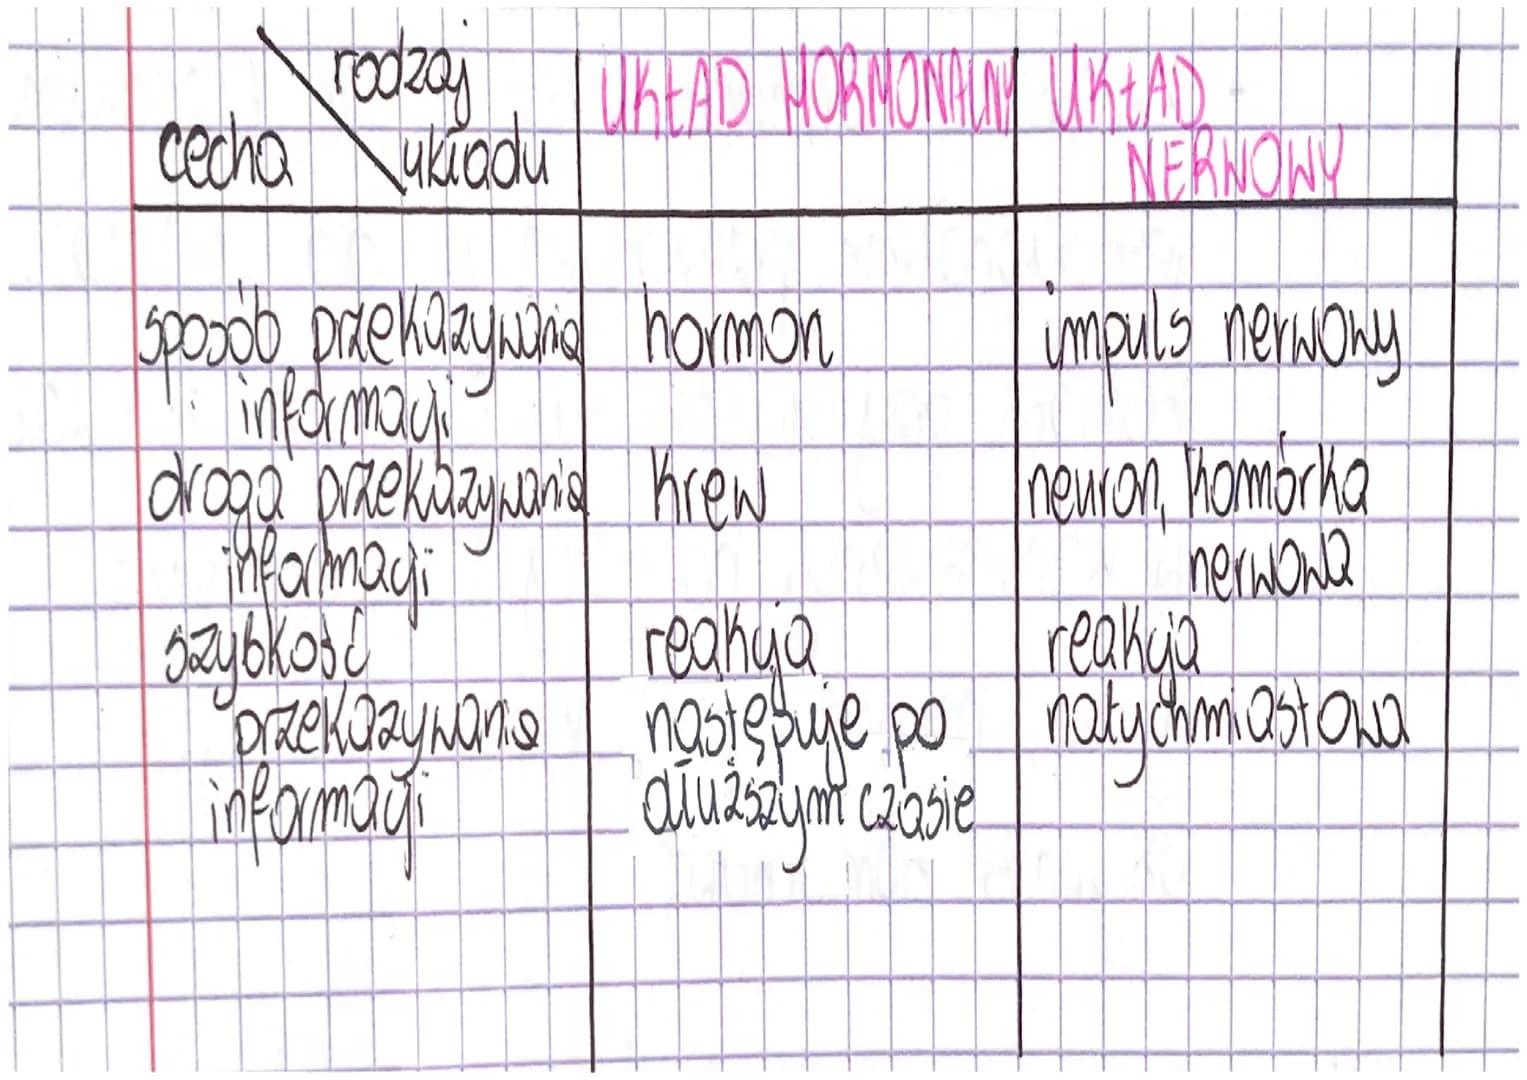 rodzaj
cecha układu
UKŁAD HORMONALNY
UKŁAD
NERWOWY
sposób przekazywania
informacji
hormon
impuls nerwowy
droga przekazywania
informacji
krew
neuron, komórka
nerwowa
szybkość
przekazywania
informacji
reakcja
następuje po
dłuższym czasie
reakcja
natychmiastowa